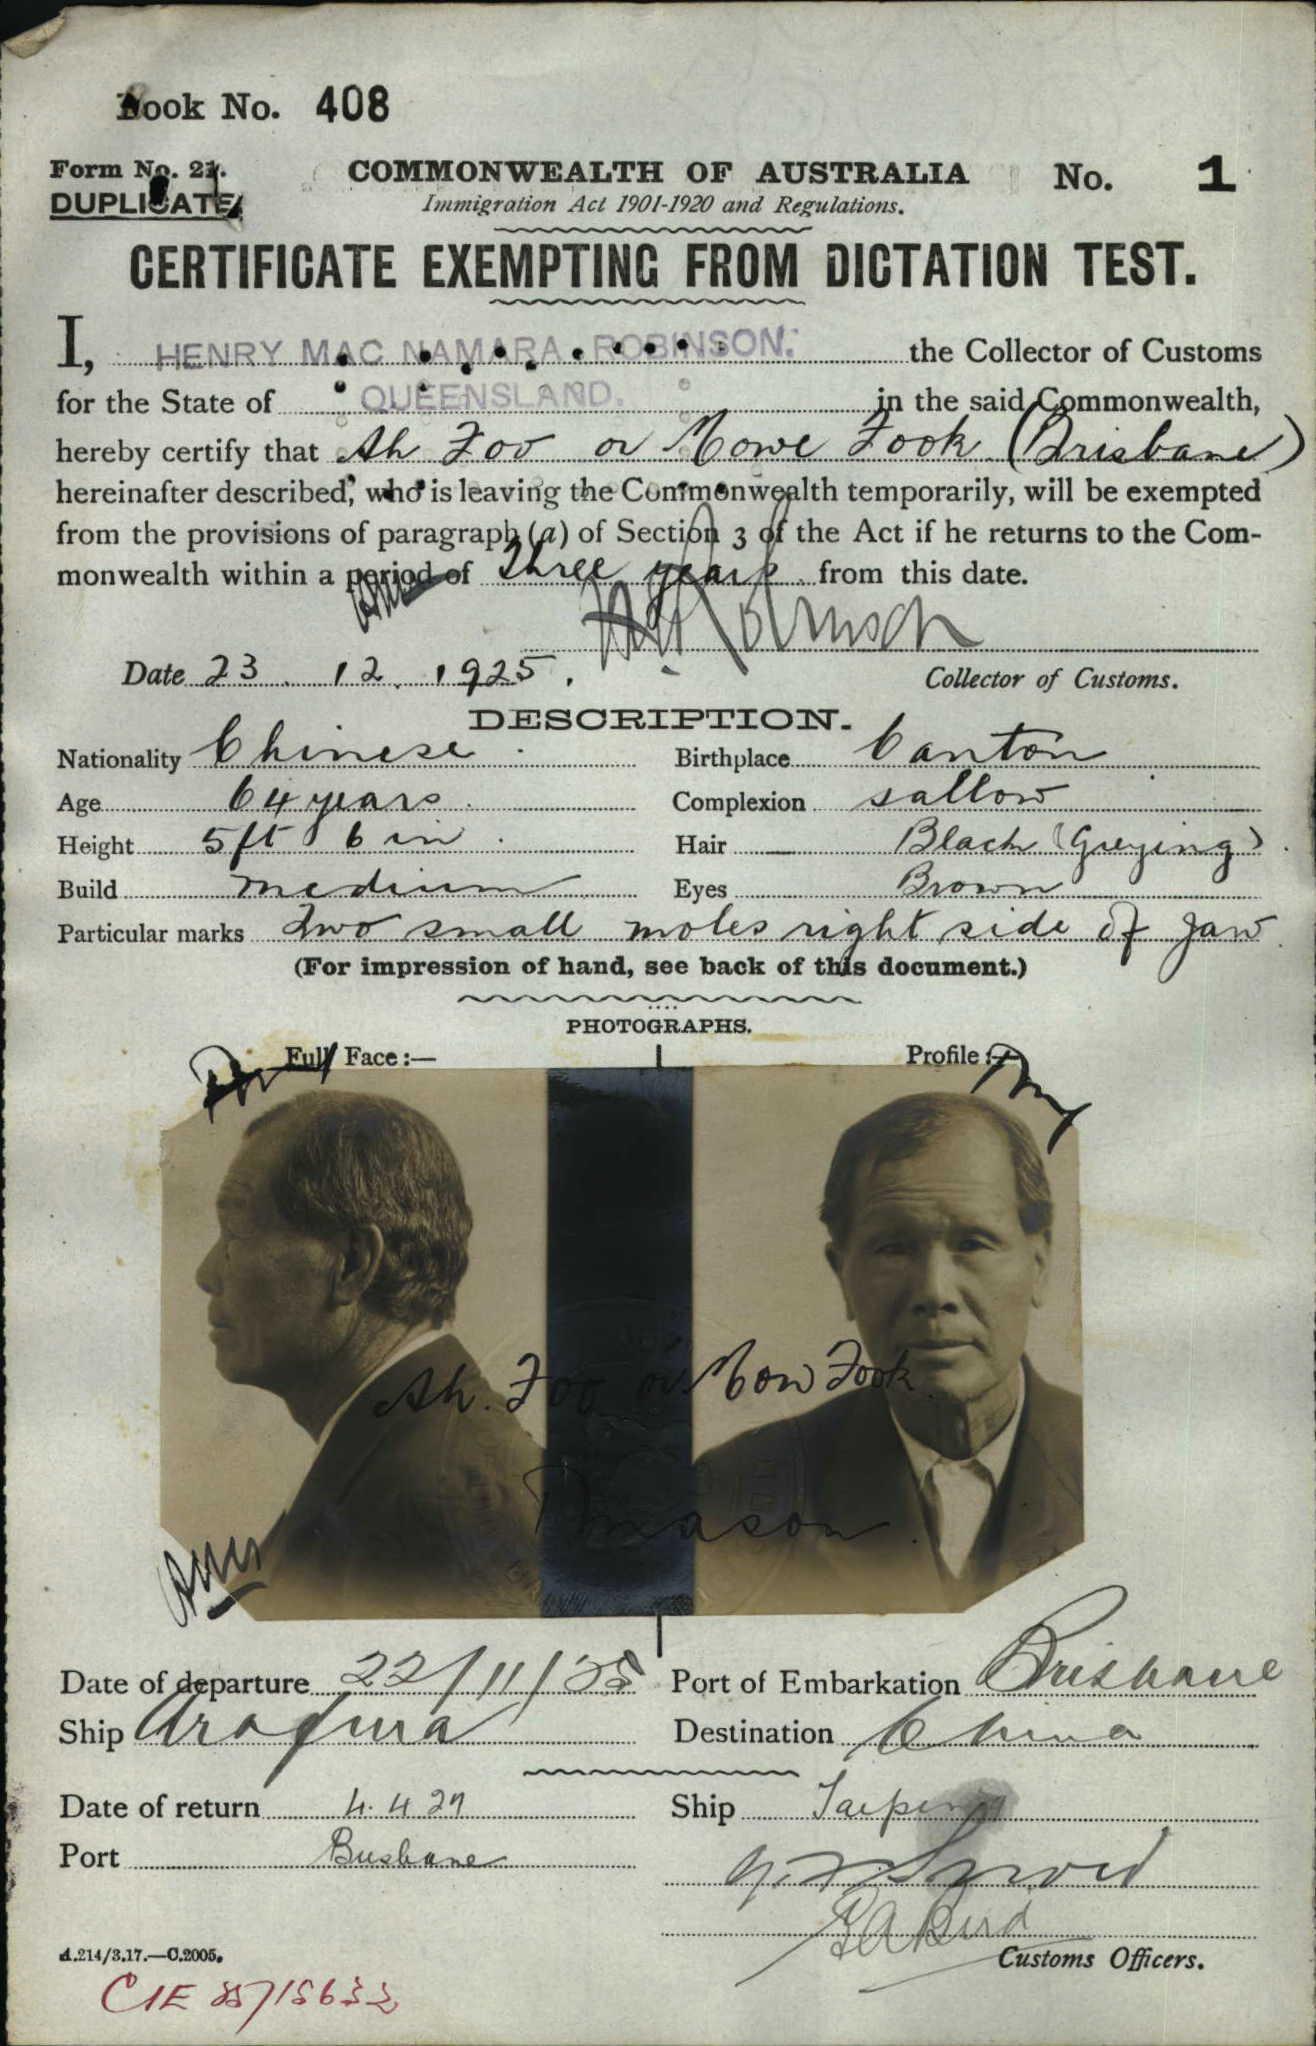 Book No. 408
Form No. 21.
DUPLICATE
COMMONWEALTH OF AUSTRALIA
No. 1
Immigration Act 1901-1920 and Regulations.
CERTIFICATE EXEMPTING FROM DICTATION TEST.
I, HENRY MAC NAMARA ROBINSON. the Collector of Customs
for the State of QUEENSLAND. in the said Commonwealth,
hereby certify that Ah Foo or Cowe Fook (Brisbane)
hereinafter described, who is leaving the Commonwealth temporarily, will be exempted
from the provisions of paragraph (a) of Section 3 of the Act if he returns to the Com-
monwealth within a period of three years from this date.
Robinson
Date 23. 12. 1925. Collector of Customs.
DESCRIPTION.
Nationality Chinese Birthplace Canton
Age 64 years Complexion sallow
Height 5 ft 6 in Hair Black (Greying)
Build medium Eyes Brown
Particular marks Two small moles right side of jaw
(For impression of hand, see back of this document.)
PHOTOGRAPHS.
Full Face:— Profile:—
Ah. Foo or Cow Fook
Mason
Date of departure 22/11/25 Port of Embarkation Brisbane
Ship Arafura Destination China
Date of return 4.4.27 Ship Taiping
Port Brisbane
Customs Officers.
A.214/3.17.—C.2005.